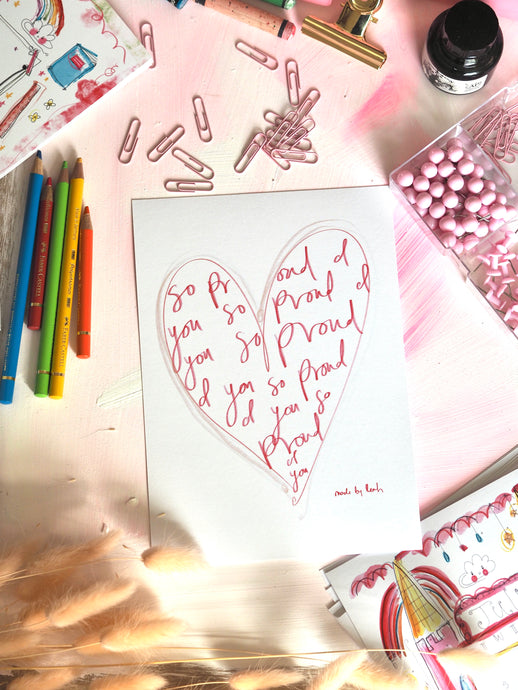 so pr oud of
you so proud of
you so proud
of you so proud
of you so
proud
of
you
made by Leah